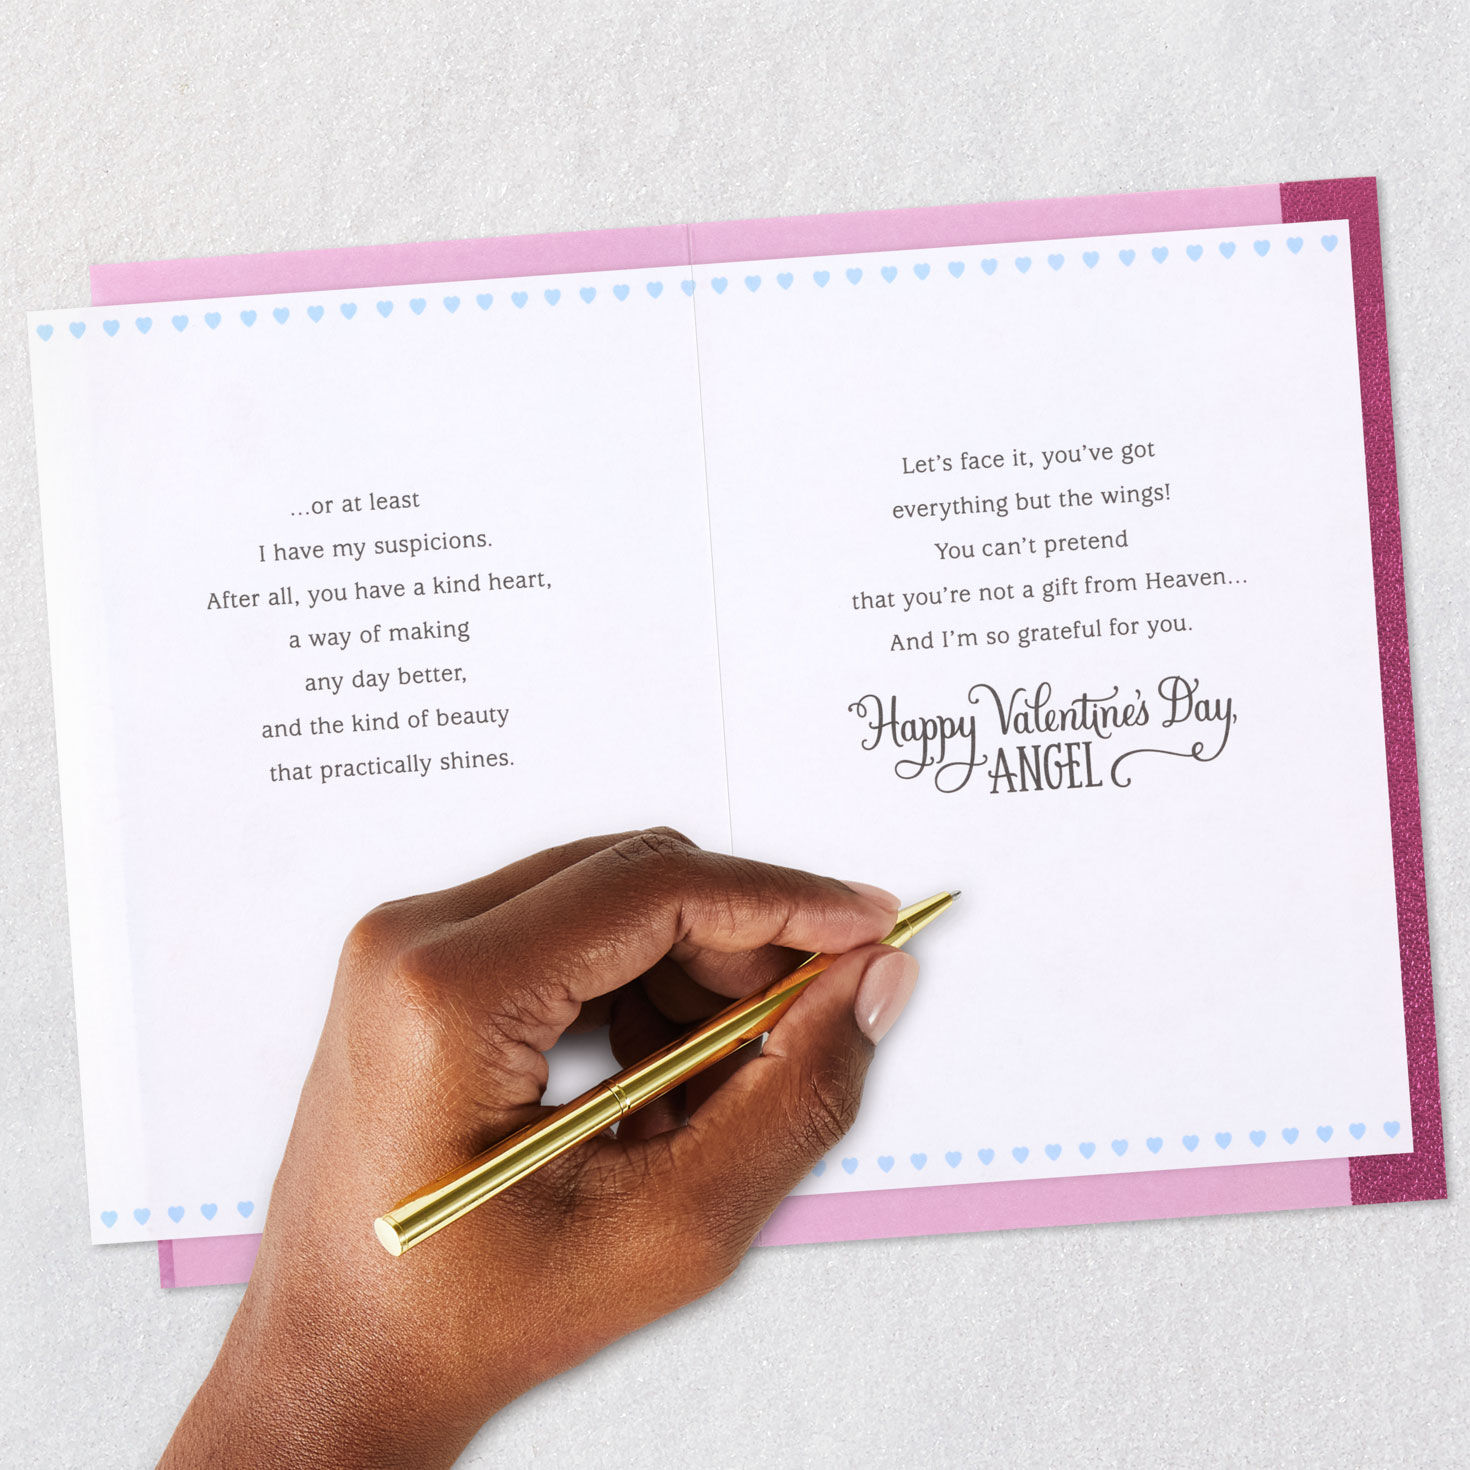 ...or at least
I have my suspicions.
After all, you have a kind heart,
a way of making
any day better,
and the kind of beauty
that practically shines.
Let’s face it, you’ve got
everything but the wings!
You can’t pretend
that you’re not a gift from Heaven...
And I’m so grateful for you.
Happy Valentine’s Day,
ANGEL